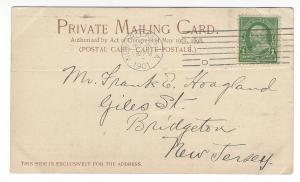 PRIVATE MAILING CARD.
Authorized by Act of Congress of May 19th, 1898.
(POSTAL CARD-CARTE POSTALE.)
1901
Mr. Frank E. Hoagland
Giles St.
Bridgeton
New Jersey.
THIS SIDE IS EXCLUSIVELY FOR THE ADDRESS.